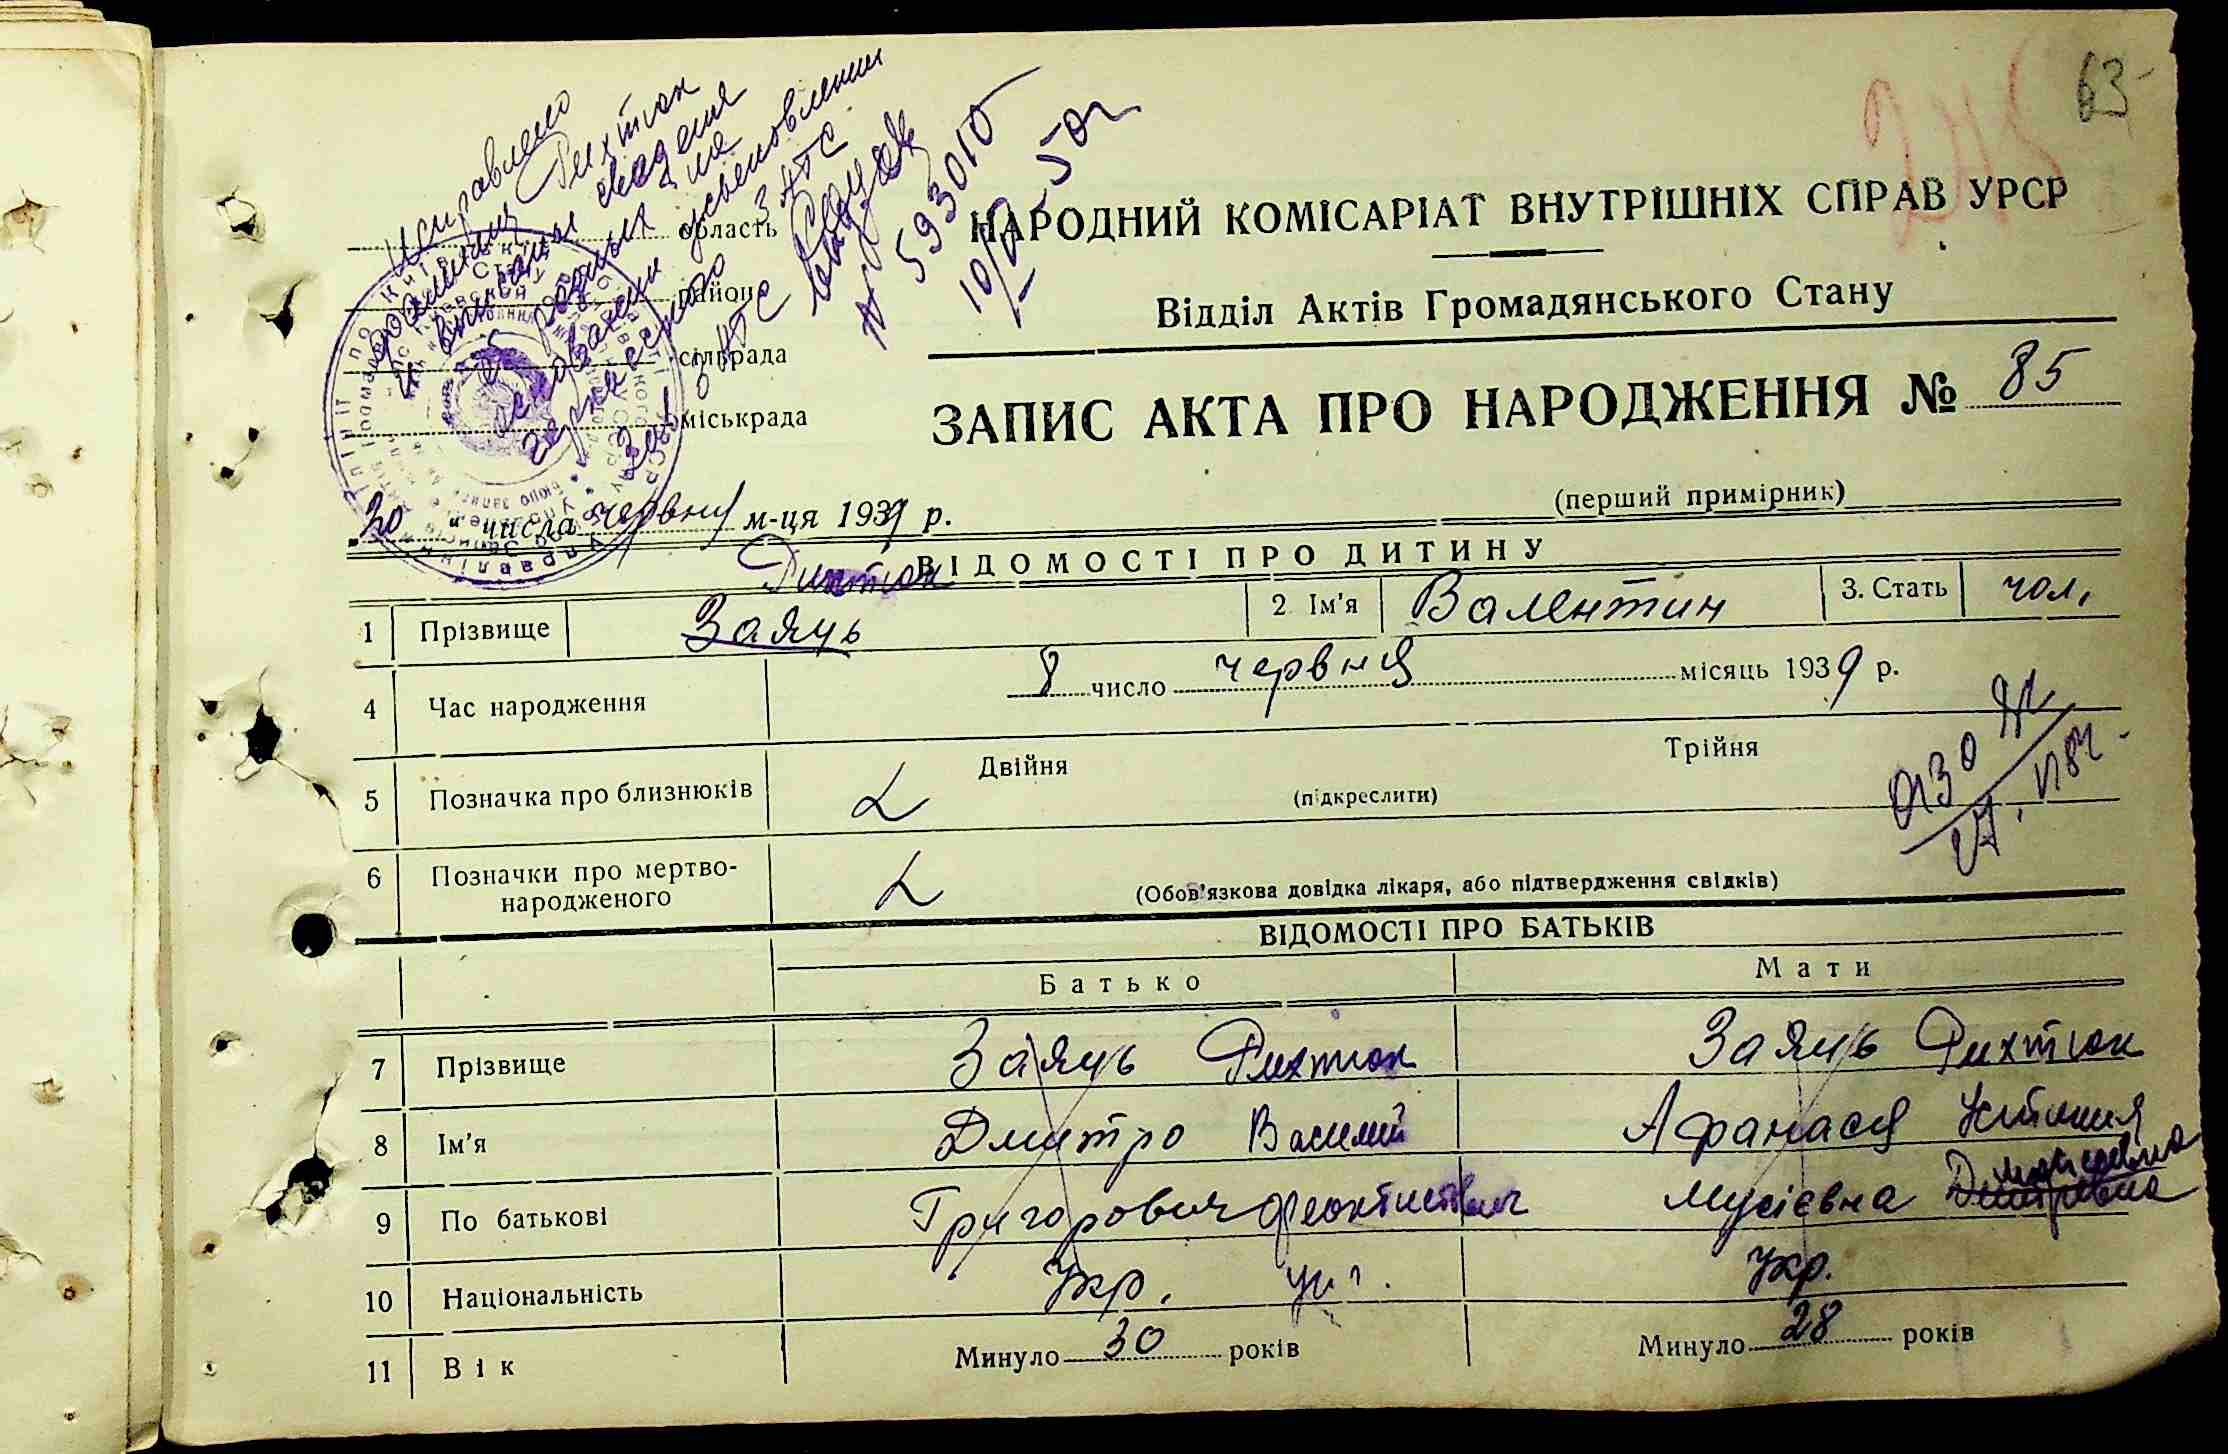 63
245
Исправлено
фамилия Рихтюк
и вписаны сведения
о родных на
основании
область
район
сільрада
міськрада
№ 593010
НАРОДНИЙ КОМІСАРІАТ ВНУТРІШНІХ СПРАВ УРСР
Відділ Актів Громадянського Стану
ЗАПИС АКТА ПРО НАРОДЖЕННЯ № 85
(перший примірник)
30 " числа червня м-ця 1939 р.
ВІДОМОСТІ ПРО ДИТИНУ
Рихтюк
1 Прізвище Заяць 2 Ім'я Валентин 3. Стать чол.
4 Час народження 8 число червня місяць 1939 р.
5 Позначка про близнюків Двійня Трійня
(підкреслити)
6 Позначки про мертво-
народженого (Обов'язкова довідка лікаря, або підтвердження свідків)
ВІДОМОСТІ ПРО БАТЬКІВ
Батько Мати
7 Прізвище Заяць Рихтюк Заяць Рихтюк
8 Ім'я Дмитро Василий Афанасія Устиния
9 По батькові Григорович Феоктистович Мусієвна Дмитревна Моисеевна
10 Національність Укр. Укр.
11 Вік Минуло 30 років Минуло 28 років